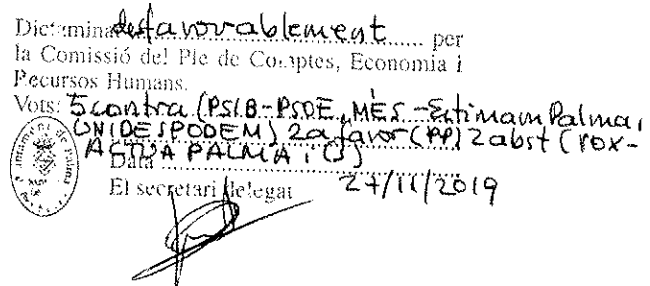 Dictaminat desfavorablement per
la Comissió del Ple de Comptes, Economia i
Recursos Humans.
Vots: 5 contra (PSIB-PSOE, MÉS-Estimam Palma,
UNIDES PODEM) 2 a favor (PP) 2 abst (VOX-
ACTUA PALMA i Cs)
Data
El secretari delegat 27/11/2019